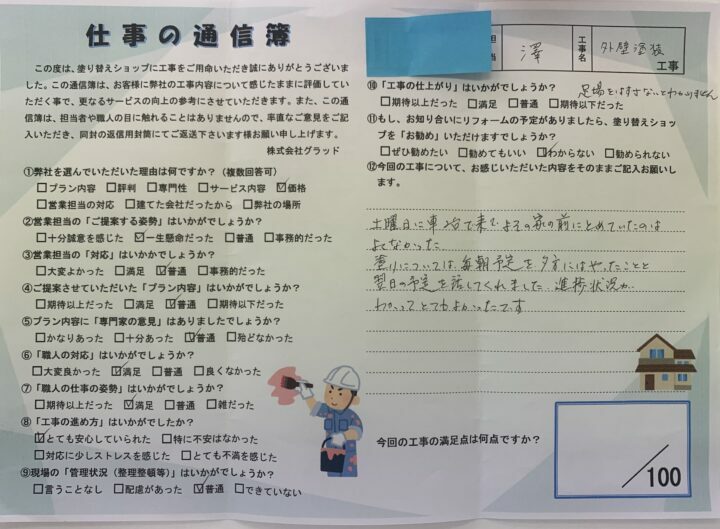 仕事の通信簿
この度は、塗り替えショップに工事をご用命いただき誠にありがとうございま
した。この通信簿は、お客様に弊社の工事内容について感じたままに評価してい
ただく事で、更なるサービスの向上の参考にさせていただきます。また、この通
信簿は、担当者や職人の目に触れることはありませんので、率直なご意見をご記
入いただき、同封の返信用封筒にてご返送下さいます様お願い申し上げます。
株式会社グラッド
①弊社を選んでいただいた理由は何ですか？（複数回答可）
□プラン内容 □評判 □専門性 □サービス内容 ☑価格
□営業担当の対応 □建てた会社だったから □弊社の場所
②営業担当の「ご提案する姿勢」はいかがでしょうか？
□十分誠意を感じた ☑一生懸命だった □普通 □事務的だった
③営業担当の「対応」はいかかでしょうか？
□大変よかった □満足 ☑普通 □事務的だった
④ご提案させていただいた「プラン内容」はいかがでしょうか？
□期待以上だった □満足 ☑普通 □期待以下だった
⑤プラン内容に「専門家の意見」はありましたでしょうか？
□かなりあった □十分あった ☑普通 □殆どなかった
⑥「職人の対応」はいかがでしょうか？
□大変良かった ☑満足 □普通 □良くなかった
⑦「職人の仕事の姿勢」はいかがでしょうか？
□期待以上だった ☑満足 □普通 □雑だった
⑧「工事の進め方」はいかがでしたか？
☑とても安心していられた □特に不安はなかった
□対応に少しストレスを感じた □とても不満を感じた
⑨現場の「管理状況（整理整頓等）」はいかがでしょうか？
□言うことなし □配慮があった ☑普通 □できていない
当 澤 工事名 外壁塗装 工事
⑩「工事の仕上がり」はいかがでしょうか？ 足場をはずさないとわかりません
□期待以上だった □満足 □普通 □期待以下だった
⑪もし、お知り合いにリフォームの予定がありましたら、塗り替えショッ
プを「お勧め」いただけますでしょうか？
□ぜひ勧めたい □勧めてもいい ☑わからない □勧められない
⑫今回の工事について、お感じいただいた内容をそのままご記入お願いし
ます。
土曜日に車2台で来てよその家の前にとめていたのは
よくなかった
塗りについては毎朝予定を夕方にはやったことと
翌日の予定を話してくれました 進捗状況が
わかってとてもよかったです
今回の工事の満足点は何点ですか？
/100